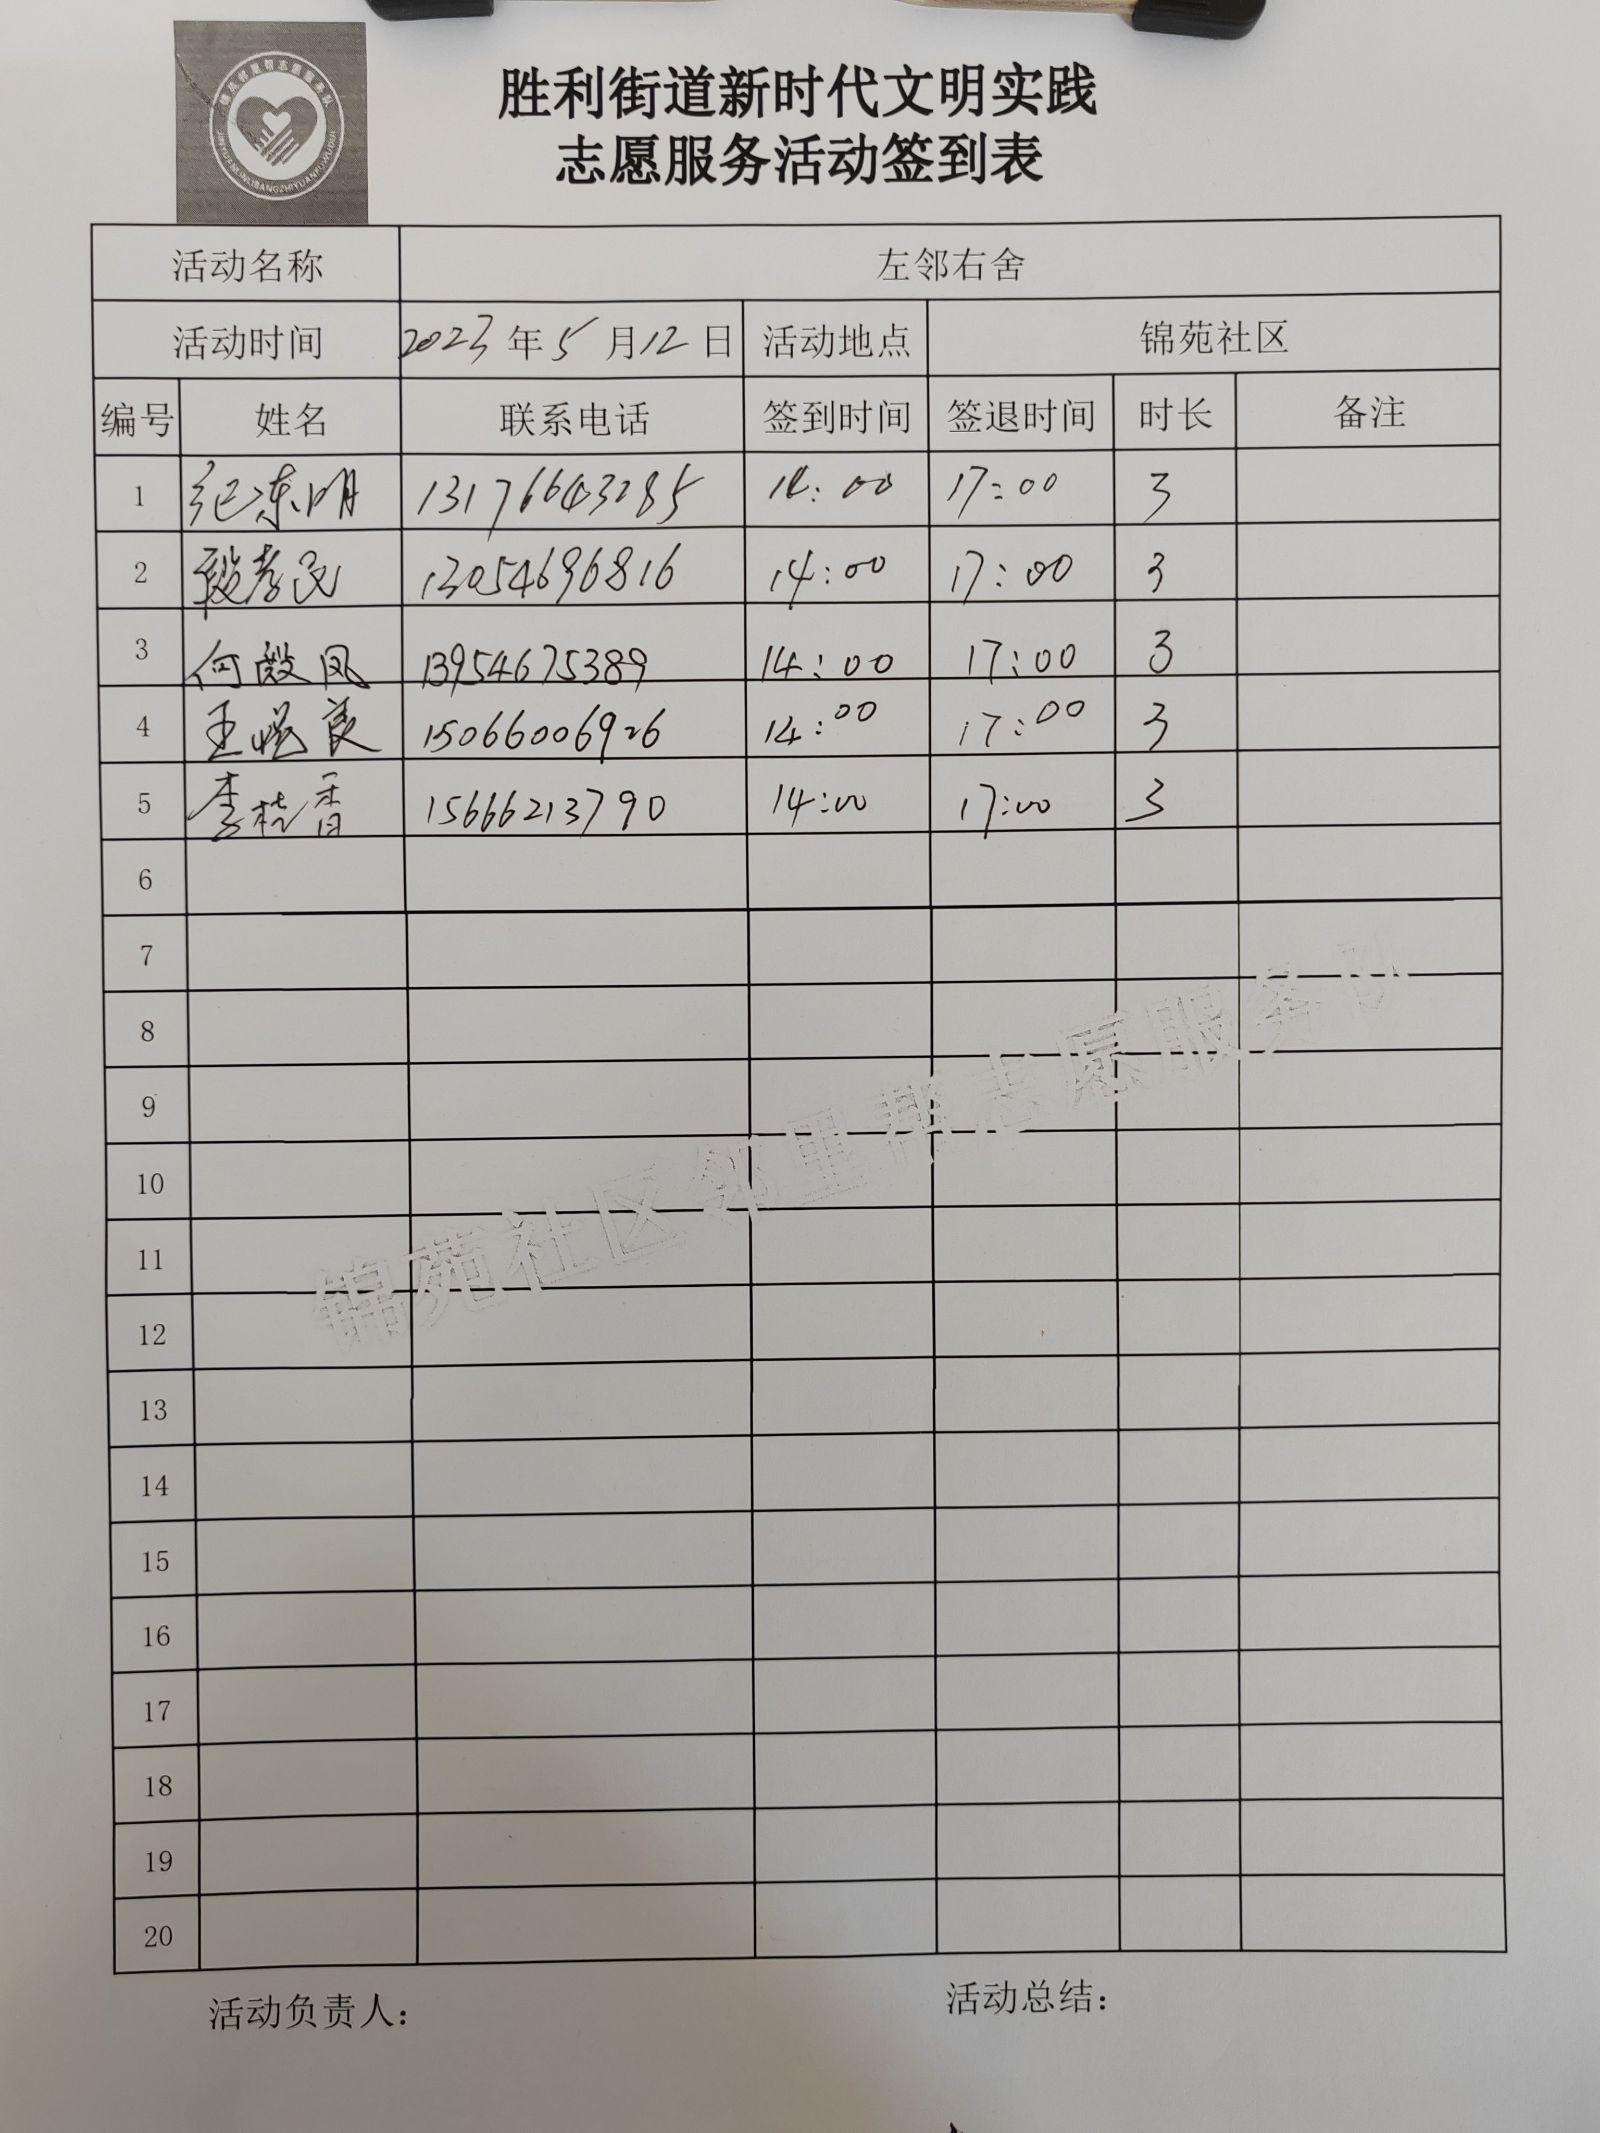 锦苑邻里帮志愿服务队
JINYUANLINLIBANGZHIYUANFUWUDUI
胜利街道新时代文明实践
志愿服务活动签到表
活动名称 左邻右舍
活动时间 2023年5月12日 活动地点 锦苑社区
编号 姓名 联系电话 签到时间 签退时间 时长 备注
1 纪东明 13176643285 14:00 17:00 3
2 段孝民 13054696816 14:00 17:00 3
3 何殿凤 13954675389 14:00 17:00 3
4 王 良 15066006926 14:00 17:00 3
5 李桂香 15666213790 14:00 17:00 3
6
7
8
9
10
11
12
13
14
15
16
17
18
19
20
锦苑社区邻里帮志愿服务队
活动负责人: 活动总结: